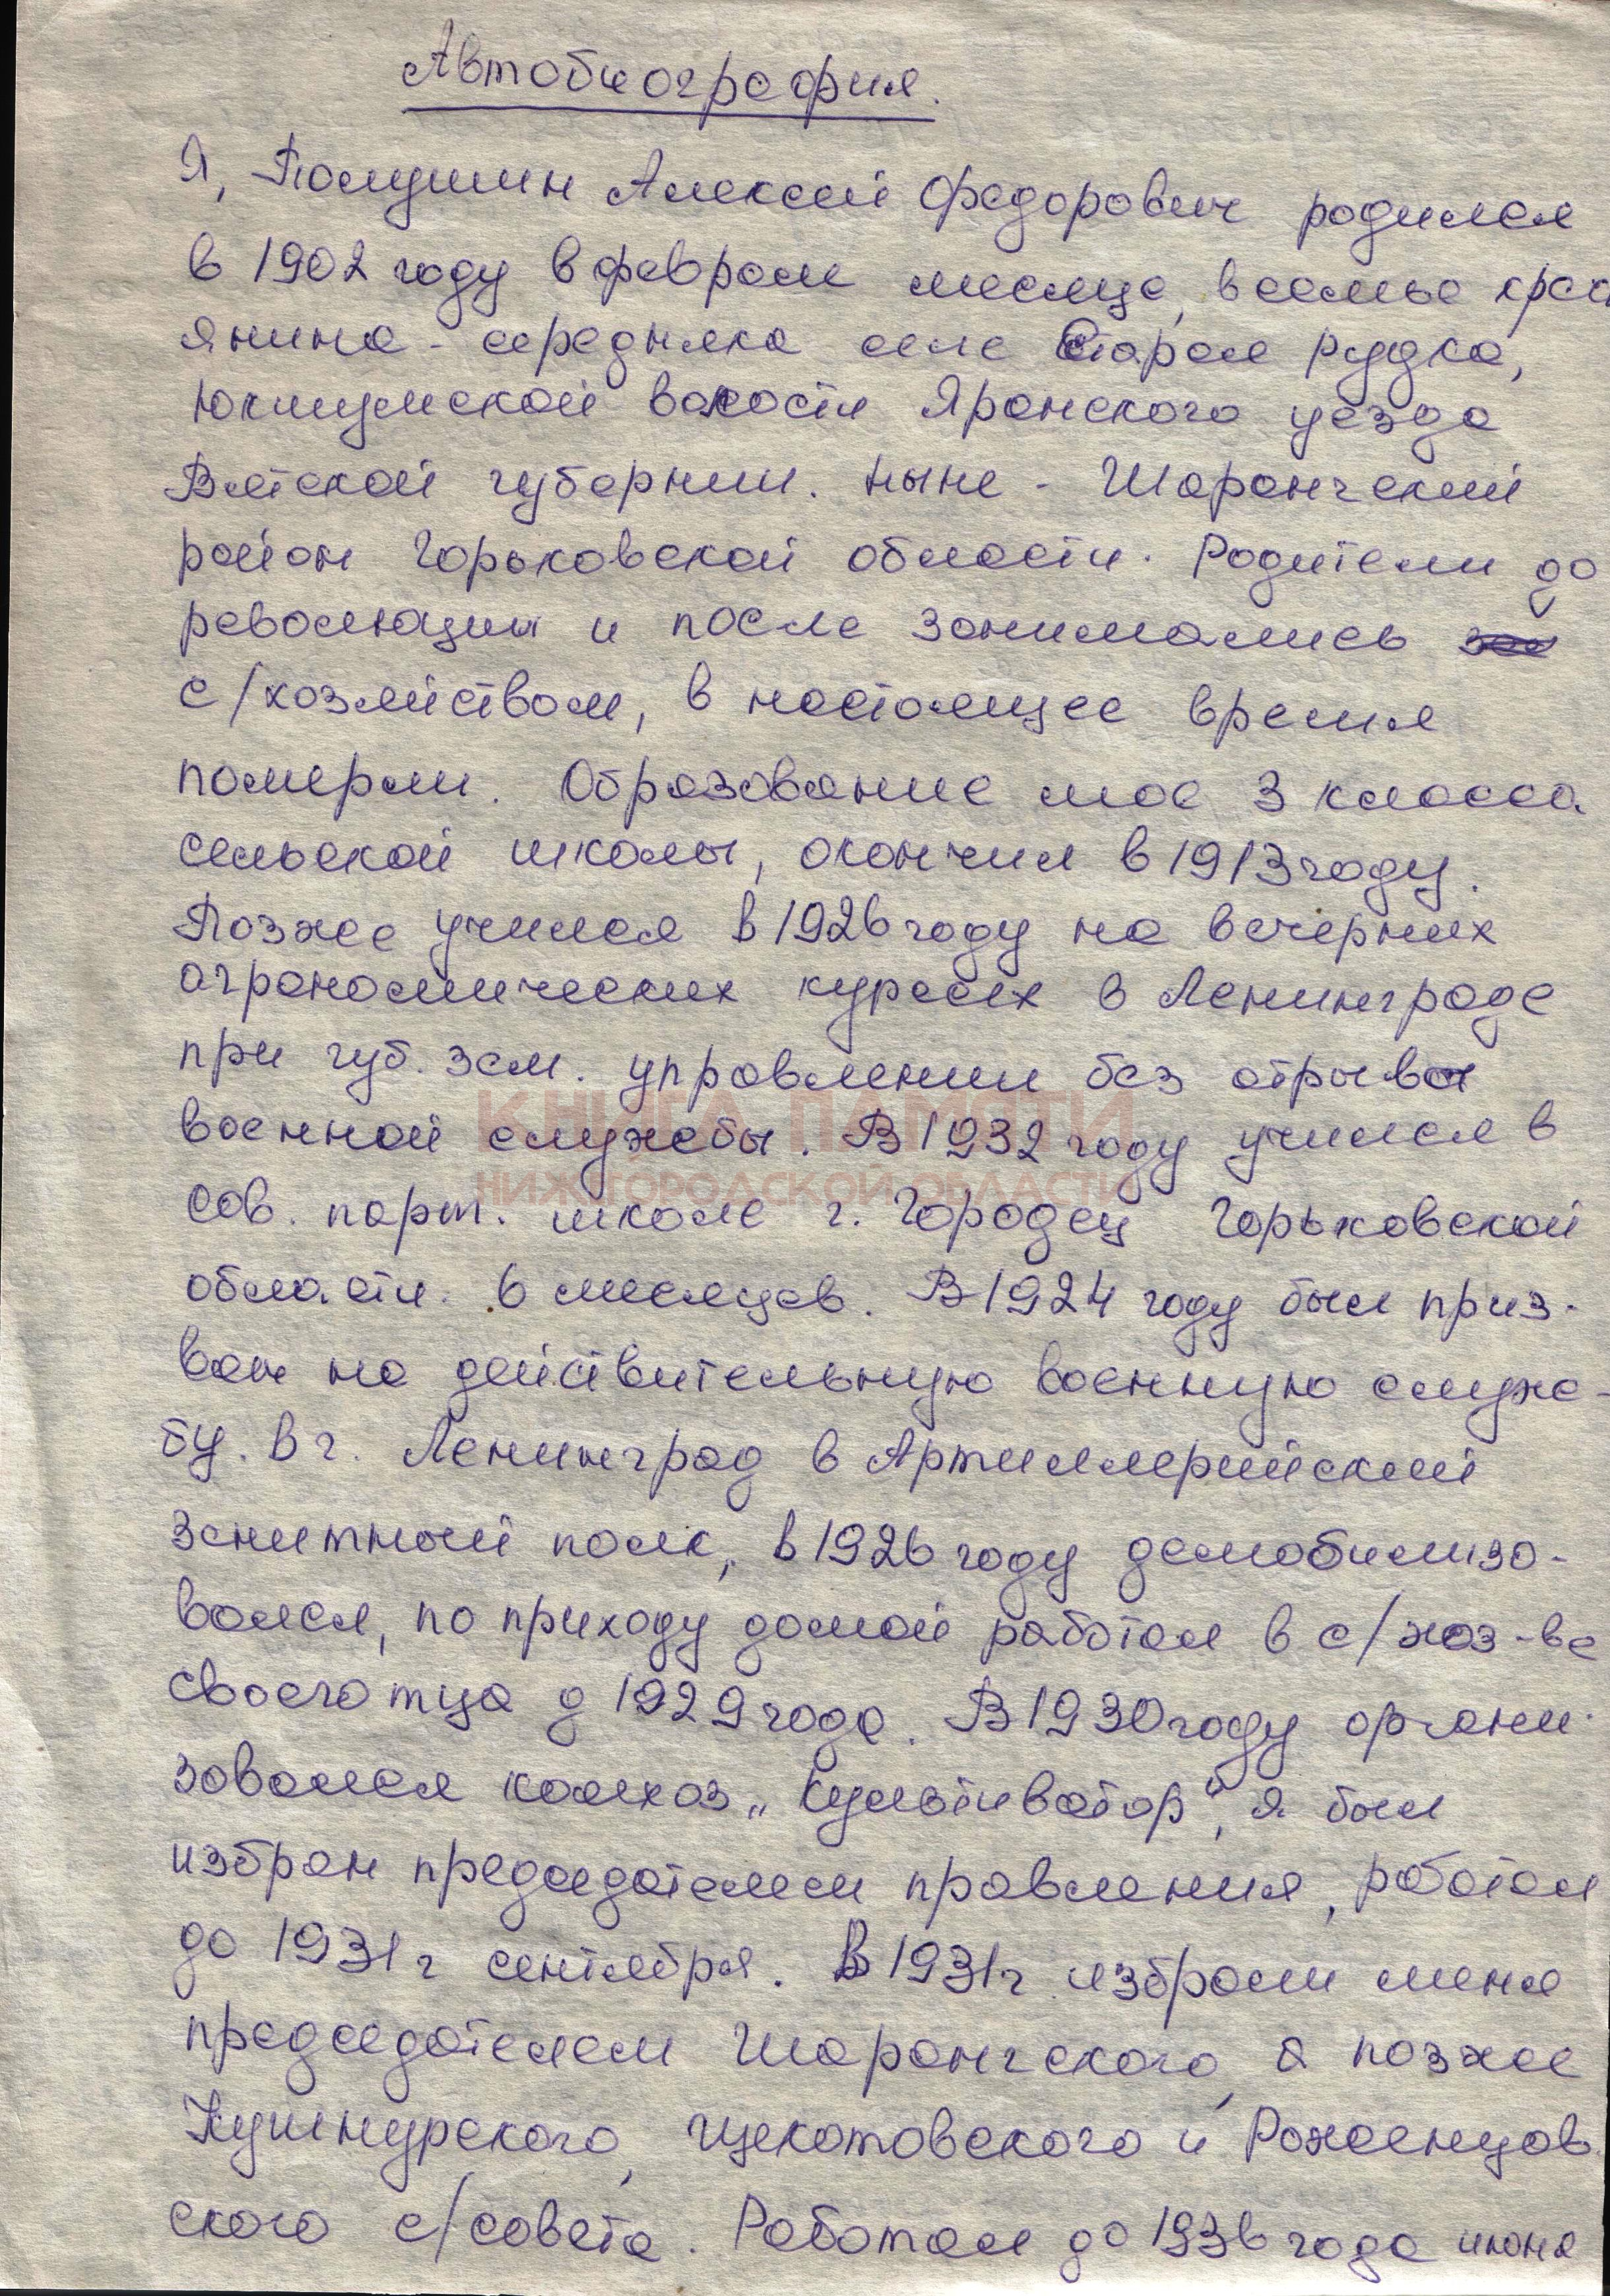 Автобиография.
Я, Полушин Алексей Федорович родился
в 1902 году в феврале месяце, в семье крест
янина - середняка селе Старая Рудка,
Юкшумской волости Яранского уезда
Вятской губернии. ныне - Шарангский
район Горьковской области. Родители до
революции и после занимались
с/хозяйством, в настоящее время
померли. Образование мое 3 класса
сельской школы, окончил в 1913 году.
Позже учился в 1926 году на вечерних
агрономических курсах в Ленинграде
при губ. зем. управлении без отрыва
КНИГА ПАМЯТИ
военной службы. В 1932 году учился в
НИЖЕГОРОДСКОЙ ОБЛАСТИ
сов. парт. школе г. Городец Горьковской
области. 6 месяцев. В 1924 году был приз-
ван на действительную военную служ-
бу. в г. Ленинград в Артиллерийский
зенитный полк, в 1926 году демобилизо-
вался, по приходу домой работал в с/хоз-ве
своего тца д 1929 года. В 1930 году органи-
зовался колхоз „Культиватор", я был
избран председателем правления, работал
до 1931 г сентября. В 1931 г. избрали меня
председателем Шарангского, а позже
Кушнурского, Щекотовского и Роженцов
ского с/совета. Работал до 1936 года июня